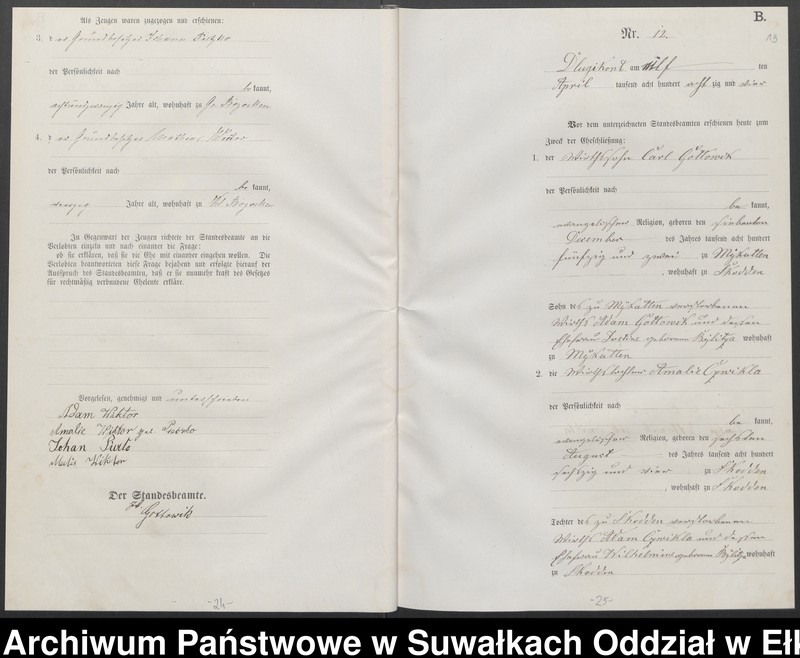 Als Zeugen waren zugezogen und erschienen:
3. der Grundbesitzer Johann
der Persönlichkeit nach
be kannt,
achtundzwanzig Jahre alt, wohnhaft zu Gr.
4. der Grundbesitzer
der Persönlichkeit nach
be kannt,
Jahre alt, wohnhaft zu
In Gegenwart der Zeugen richtete der Standesbeamte an die
Verlobten einzeln und nach einander die Frage:
ob sie erklären, daß sie die Ehe mit einander eingehen wollen. Die
Verlobten beantworteten diese Frage bejahend und erfolgte hierauf der
Ausspruch des Standesbeamten, daß er sie nunmehr kraft des Gesetzes
für rechtmäßig verbundene Eheleute erkläre.
Vorgelesen, genehmigt und unterschrieben
Adam Wiktor
Amalie Wiktor geb.
Johan
Wiktor
Der Standesbeamte.
Gottowik
-24-
B.
13
Nr. 12.
am elf ten
April tausend acht hundert acht zig und vier
Vor dem unterzeichneten Standesbeamten erschienen heute zum
Zweck der Eheschließung:
1. der Wirthssohn Carl Gottowik
der Persönlichkeit nach
be kannt,
evangelischer Religion, geboren den siebenten
Dezember des Jahres tausend acht hundert
fünfzig und zwei zu Mykutten
, wohnhaft zu Skodden
Sohn des zu Mykutten verstorbenen
Wirths Adam Gottowik und dessen
Ehefrau geborenen wohnhaft
zu Mykutten
2. die Wirthstochter Amalie Czwikla
der Persönlichkeit nach
be kannt,
evangelischer Religion, geboren den sechsten
August des Jahres tausend acht hundert
sechszig und vier zu Skodden
, wohnhaft zu Skodden
Tochter des zu Skodden verstorbenen
Wirths Adam Czwikla und dessen
Ehefrau Wilhelmine geborenen wohnhaft
zu Skodden
-25-
Archiwum Państwowe w Suwałkach Oddział w Ełk